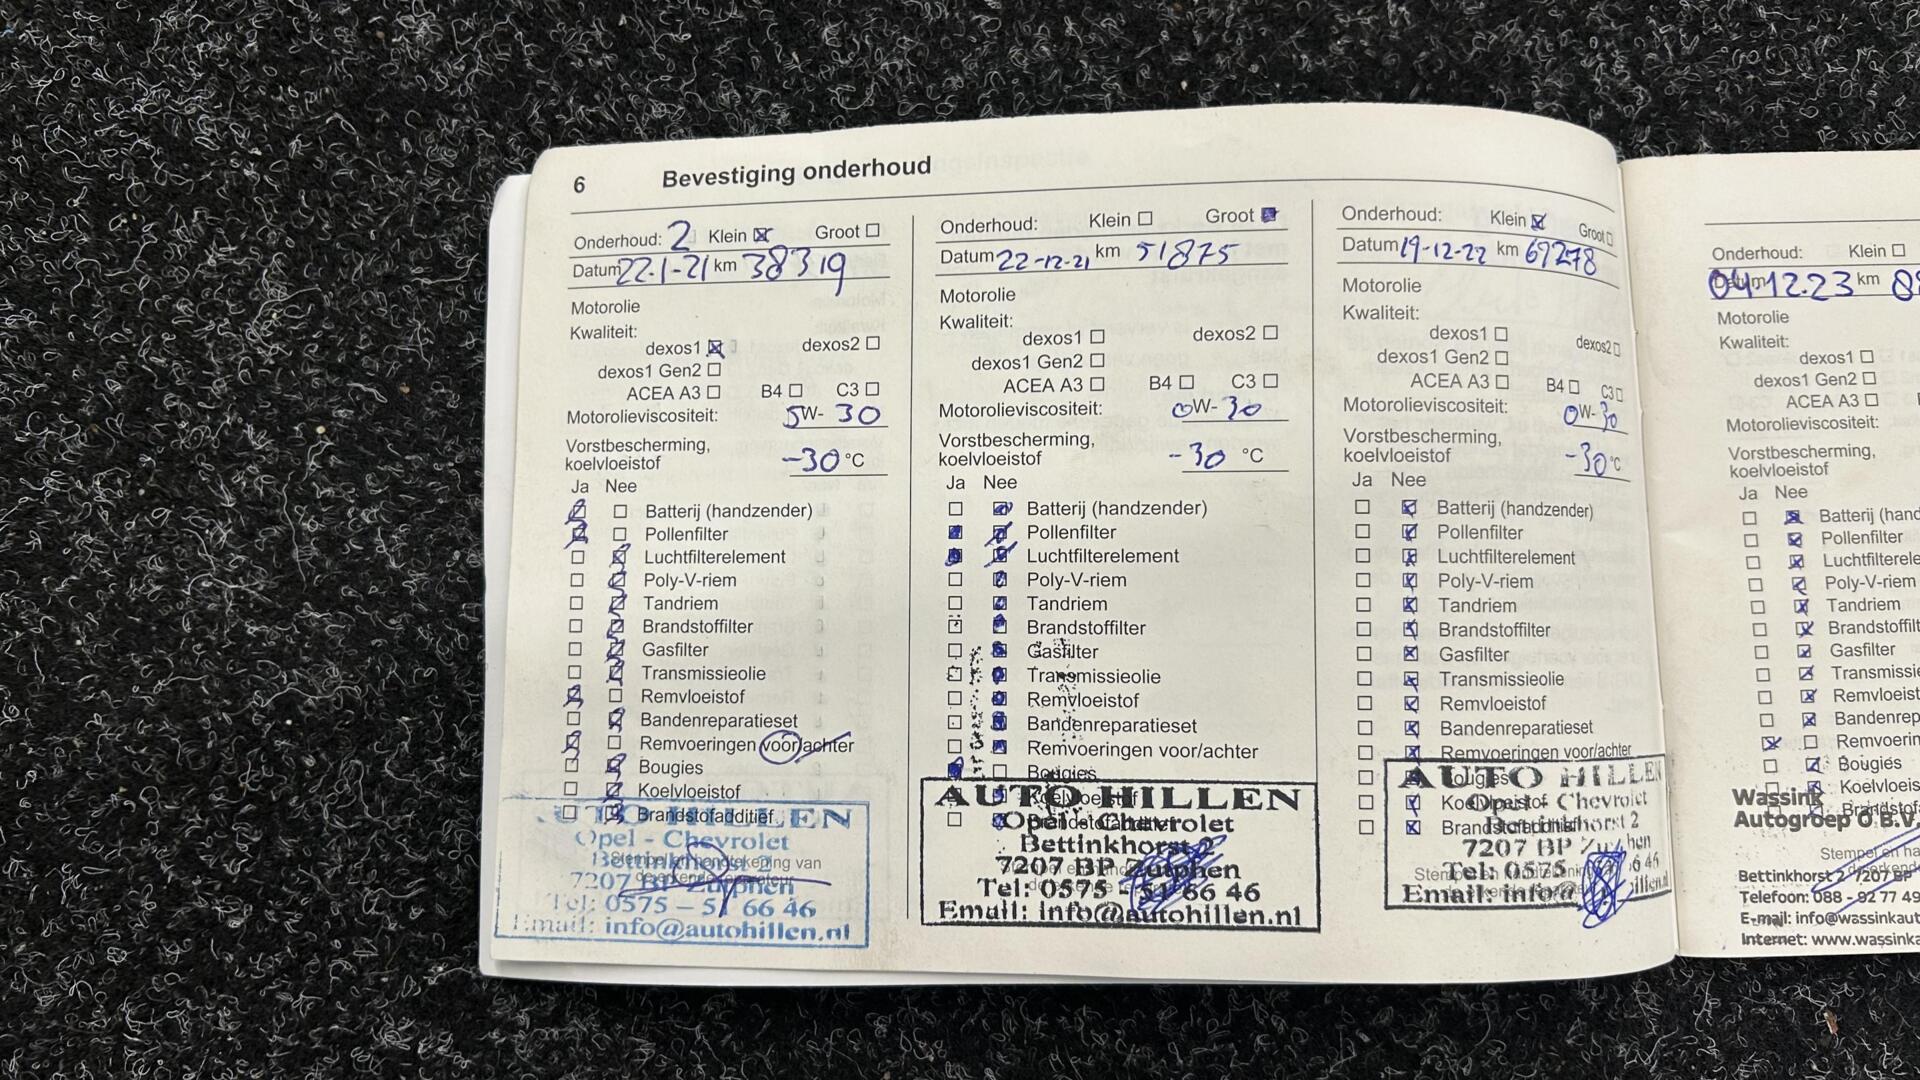 6 Bevestiging onderhoud
Onderhoud: 2 Klein Groot
Datum 22-1-21 km 38319
Motorolie
Kwaliteit:
dexos1 dexos2
dexos1 Gen2
ACEA A3 B4 C3
Motorolieviscositeit: 5W-30
Vorstbescherming,
koelvloeistof -30 °C
Ja Nee
Batterij (handzender)
Pollenfilter
Luchtfilterelement
Poly-V-riem
Tandriem
Brandstoffilter
Gasfilter
Transmissieolie
Remvloeistof
Bandenreparatieset
Remvoeringen voor/achter
Bougies
Koelvloeistof
Brandstofadditief
AUTO HILLEN
Opel - Chevrolet
Bettinkhorst 2
7207 BP Zutphen
Tel: 0575 - 51 66 46
Email: info@autohillen.nl
Stempel en handtekening van
de erkende reparateur
Onderhoud: Klein Groot
Datum 22-12-21 km 51875
Motorolie
Kwaliteit:
dexos1 dexos2
dexos1 Gen2
ACEA A3 B4 C3
Motorolieviscositeit: 0W-30
Vorstbescherming,
koelvloeistof -30 °C
Ja Nee
Batterij (handzender)
Pollenfilter
Luchtfilterelement
Poly-V-riem
Tandriem
Brandstoffilter
Gasfilter
Transmissieolie
Remvloeistof
Bandenreparatieset
Remvoeringen voor/achter
Bougies
Koelvloeistof
Brandstofadditief
AUTO HILLEN
Opel - Chevrolet
Bettinkhorst 2
7207 BP Zutphen
Tel: 0575 - 51 66 46
Email: info@autohillen.nl
Onderhoud: Klein Groot
Datum 19-12-22 km 69278
Motorolie
Kwaliteit:
dexos1 dexos2
dexos1 Gen2
ACEA A3 B4 C3
Motorolieviscositeit: 0W-30
Vorstbescherming,
koelvloeistof -30 °C
Ja Nee
Batterij (handzender)
Pollenfilter
Luchtfilterelement
Poly-V-riem
Tandriem
Brandstoffilter
Gasfilter
Transmissieolie
Remvloeistof
Bandenreparatieset
Remvoeringen voor/achter
Bougies
Koelvloeistof
Brandstofadditief
AUTO HILLEN
Opel - Chevrolet
Bettinkhorst 2
7207 BP Zutphen
Tel: 0575 6 46
Email: info@ illen.nl
Onderhoud: Klein
Datum 04-12-23 km
Motorolie
Kwaliteit:
dexos1
dexos1 Gen2
ACEA A3
Motorolieviscositeit:
Vorstbescherming,
koelvloeistof
Ja Nee
Batterij (hand
Pollenfilter
Luchtfilterele
Poly-V-riem
Tandriem
Brandstoffilt
Gasfilter
Transmissie
Remvloeist
Bandenrep
Remvoerin
Bougies
Koelvloeis
Brandstof
Wassink
Autogroep O.B.V.
Stempel en ha
Bettinkhorst 2, 7207 BP
Telefoon: 088 - 92 77 49
E-mail: info@wassinkaut
Internet: www.wassinka